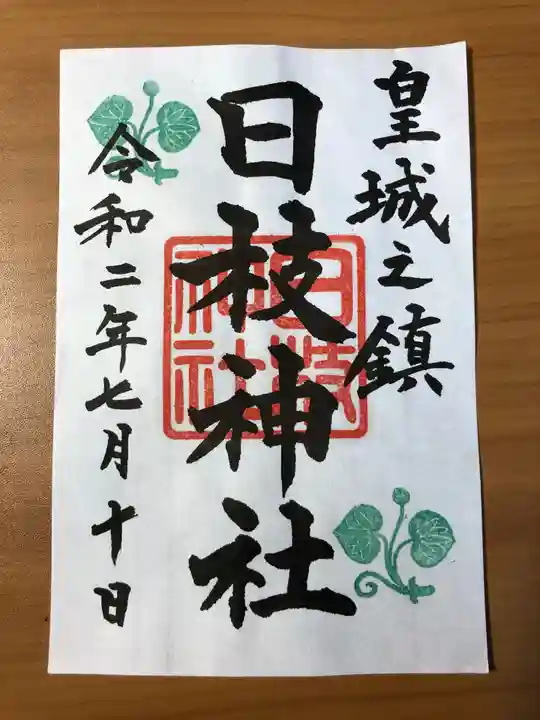 皇城之鎮
日枝神社
日枝神社
令和二年七月十日